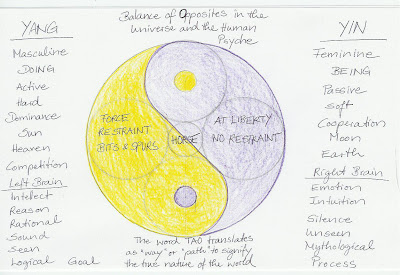 YANG
Masculine
DOING
Active
Hard
Dominance
Sun
Heaven
Competition
Left Brain
Intelect
Reason
Rational
Sound
Seen
Logical Goal
Balance of Opposites in the
Universe and the Human
Psyche
FORCE
RESTRAINT
BITS & SPURS
HORSE
AT LIBERTY
NO RESTRAINT
The word TAO translates
as "way" or "path" to signify
the true nature of the world.
YIN
Feminine
BEING
Passive
Soft
Cooperation
Moon
Earth
Right Brain
Emotion
Intuition
Silence
Unseen
Mythological
Process